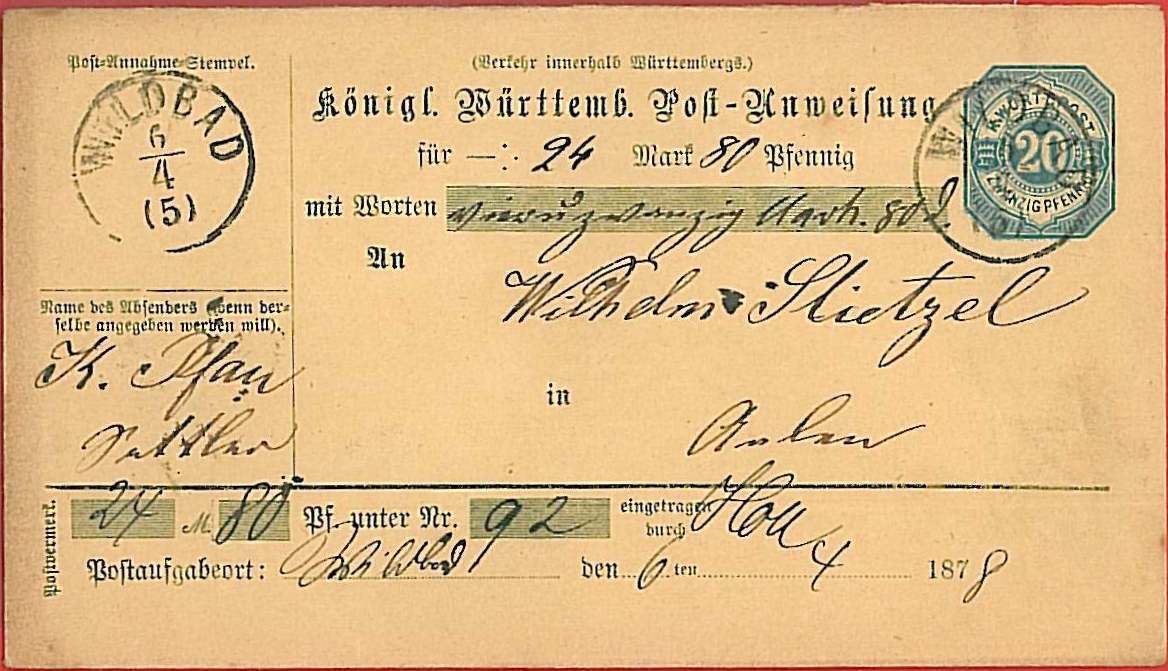 Post-Annahme-Stempel.
(Verkehr innerhalb Württembergs.)
WILDBAD
6
4
(5)
Königl. Württemb. Post-Anweisung
K. WÜRTT. POST
20
ZWANZIG PFENNIG
für —: 24 Mark 80 Pfennig
mit Worten vieruzwanzig Mark. 80 d.
An
Wilhelm Stietzel
Name des Absenders (wenn der-
selbe angegeben werden will).
K. Pfau
Sattler
in
Aalen
Postvermerk.
24 M. 80 Pf. unter Nr. 92 eingetragen
durch
Postaufgabeort: Wildbad den 6 ten 4 1878